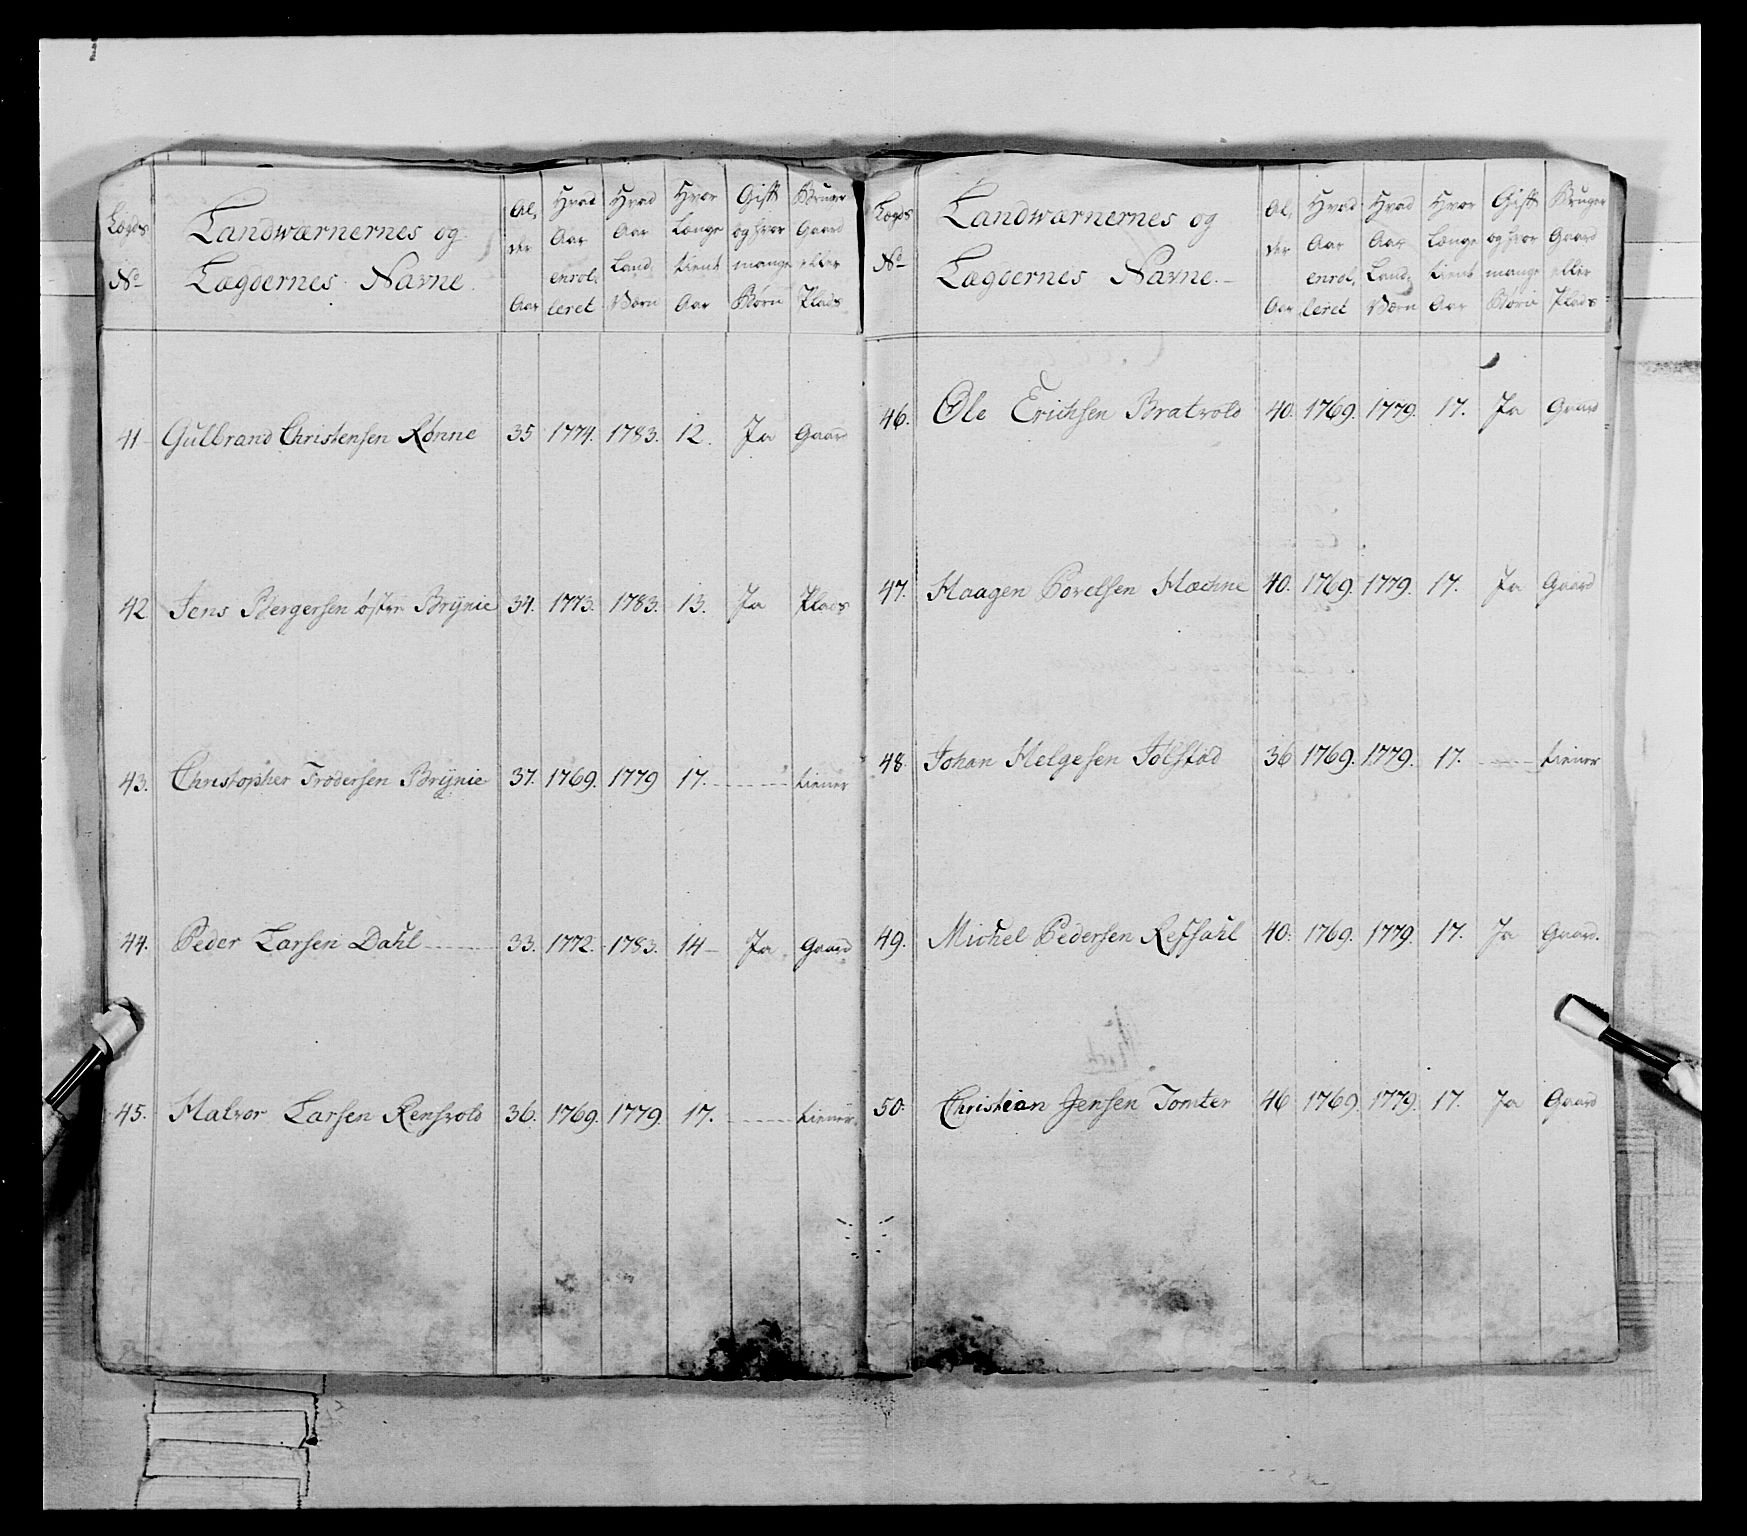 Lægds No
Landwærnernes og
Lægdernes Navne.
Al, der Aar
Hvad Aar enrol, leret
Hvad Aar Land, Værn
Hvor Længe tient Aar
Gift og hvor mange Børn
Bruger Gaard eller Plads
41 Gulbrand Christensen Rønne 35 1774. 1783. 12. Ja Gaard
42 Jens Bergersen øster Brÿnie 34. 1773. 1783. 13. Ja Plads
43. Christopher Brÿnie 37. 1769. 1779 17. tiener
44. Peder Larsen Dahl 33. 1772. 1783. 14 Ja Gaard
45. Halvor Larsen Rensvold 36. 1769. 1779. 17. tiener
Lægds No
Landwærnernes og
Lægdernes Navne.
Al, der Aar
Hvad Aar enrol, leret
Hvad Aar Land, Værn
Hvor Længe tient Aar
Gift og hvor mange Børn
Bruger Gaard eller Plads
46. Ole Erichsen Bratvold 40. 1769. 1779. 17. Ja Gaard
47. Haagen Povelsen 40. 1769. 1779. 17. Ja Gaard
48. Johan Helgesen Jølstad 36 1769. 1779. 17. tiener
49. Michel Pedersen Refsahl 40. 1769. 1779. 17. Ja Gaard.
50. Christian Jensen Tomter 46 1769. 1779. 17. Ja Gaard